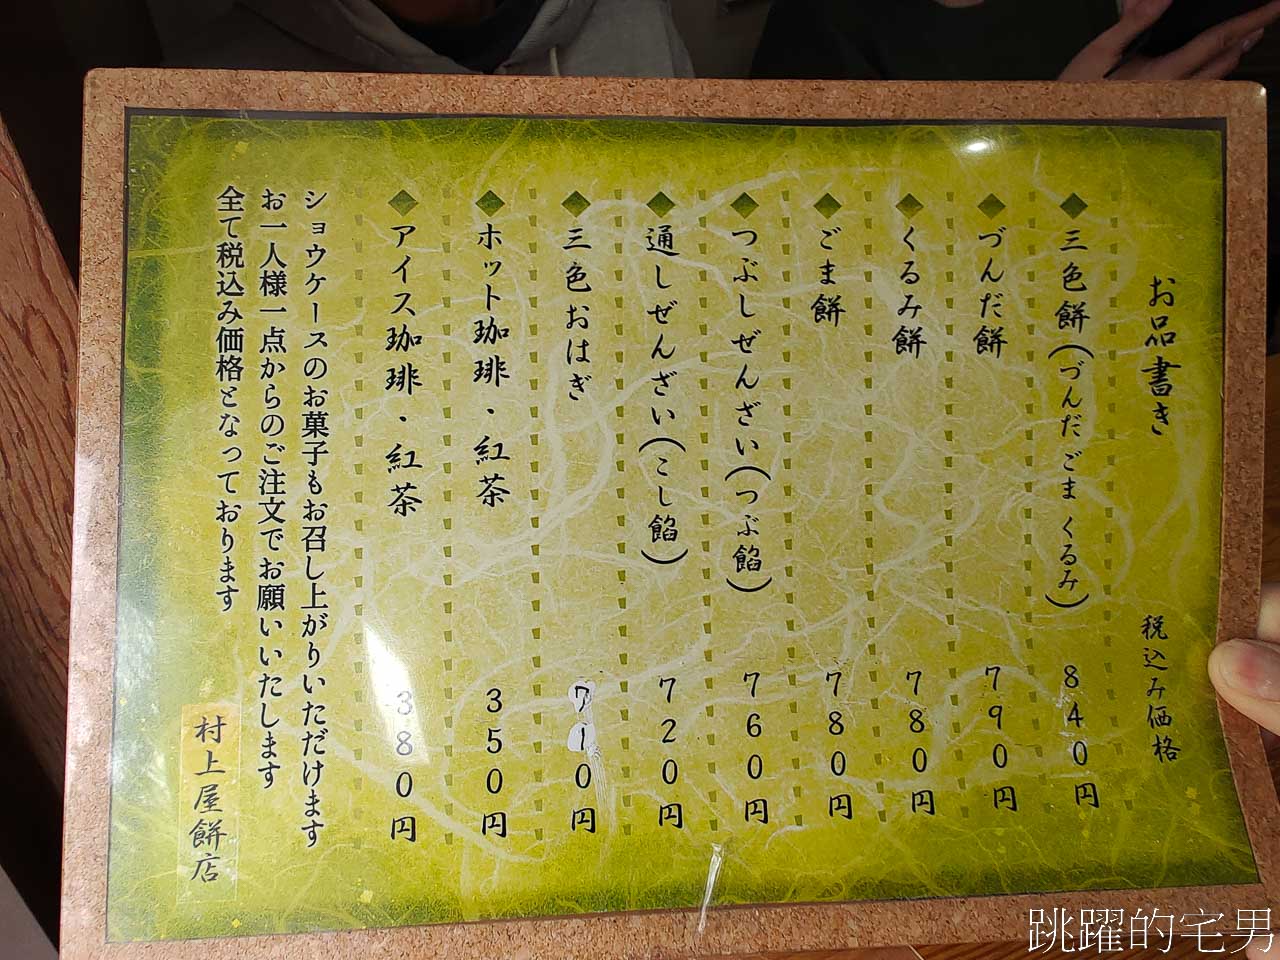 お品書き 税込み価格
◆三色餅(づんだ ごま くるみ) 840円
◆づんだ餅 790円
◆くるみ餅 780円
◆ごま餅 780円
◆つぶしぜんざい(つぶ餡) 760円
◆通しぜんざい(こし餡) 720円
◆三色おはぎ 710円
◆ホット珈琲・紅茶 350円
◆アイス珈琲・紅茶 380円
ショウケースのお菓子もお召し上がりいただけます
お一人様一点からのご注文でお願いいたします
全て税込み価格となっております
村上屋餅店
跳躍的宅男